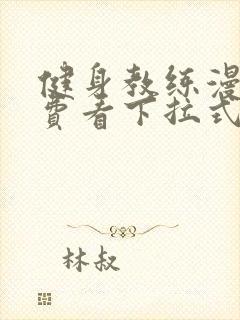 健身教练漫
费看下拉式
林叔